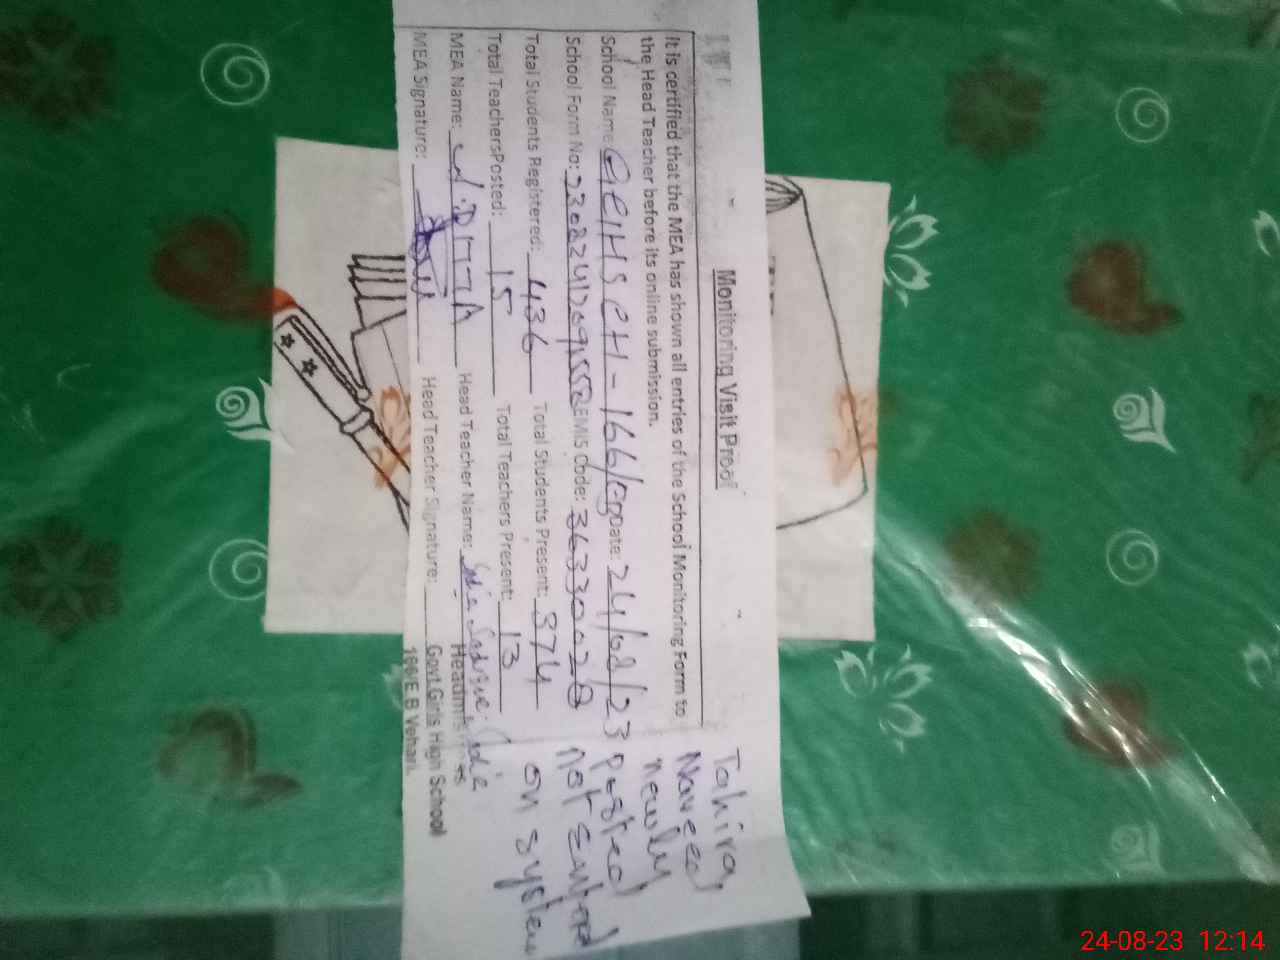 Monitoring Visit Proof
It is certified that the MEA has shown all entries of the School Monitoring Form to
the Head Teacher before its online submission.
School Name: Date: 24/08/23
School Form No: EMIS Code: 36330028
Total Students Registered: 436 Total Students Present: 374
Total TeachersPosted: 15 Total Teachers Present: 13
MEA Name: A.DITTA Head Teacher Name: Sadia
MEA Signature: Head Teacher Signature:
Headmistress
Govt.Girls High School
166/E.B Vehari.
Tahira
Naveed
newly
posted
not entered
on system
24-08-23 12:14